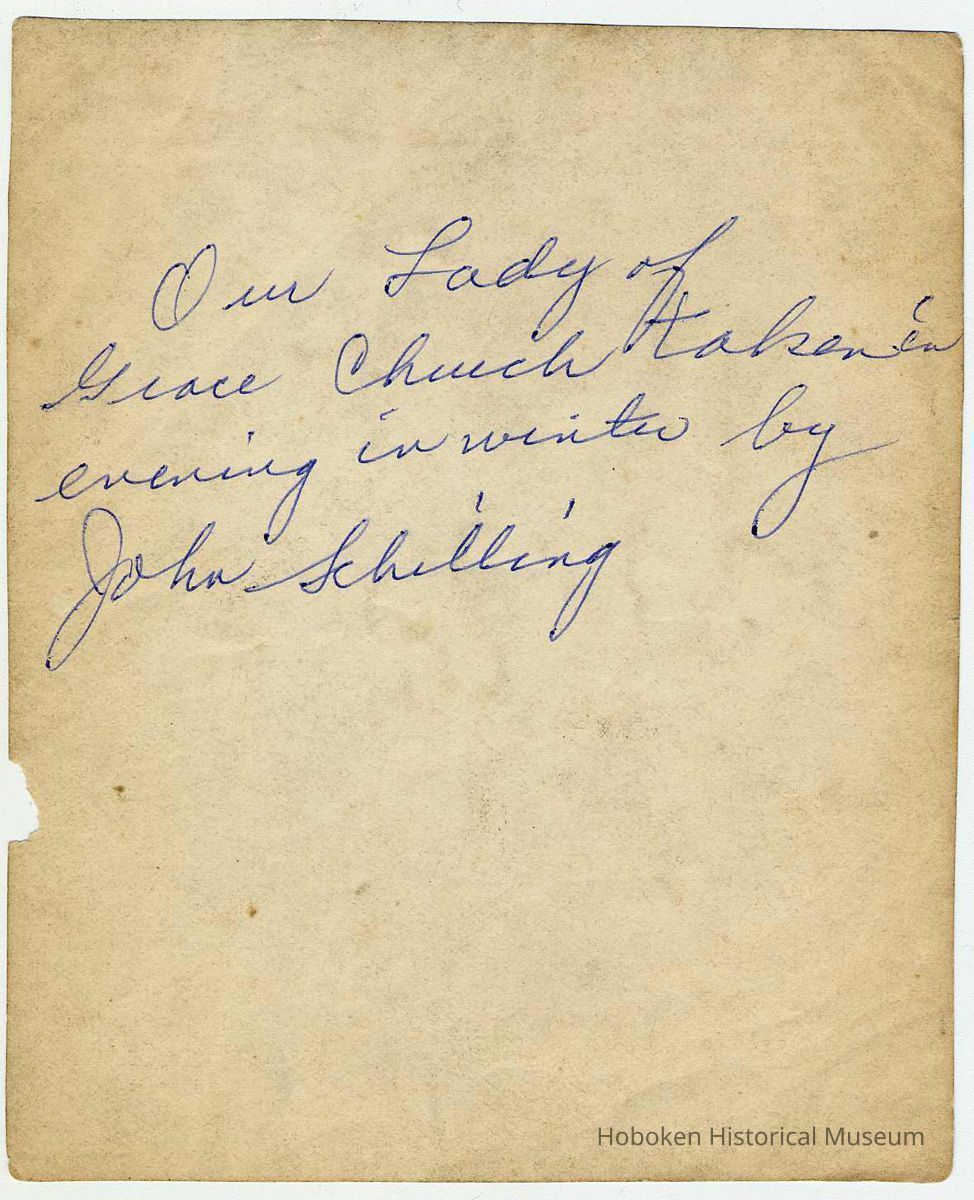 Our Lady of
Grace Church Hoboken in
evening in winter by
John Schilling
Hoboken Historical Museum